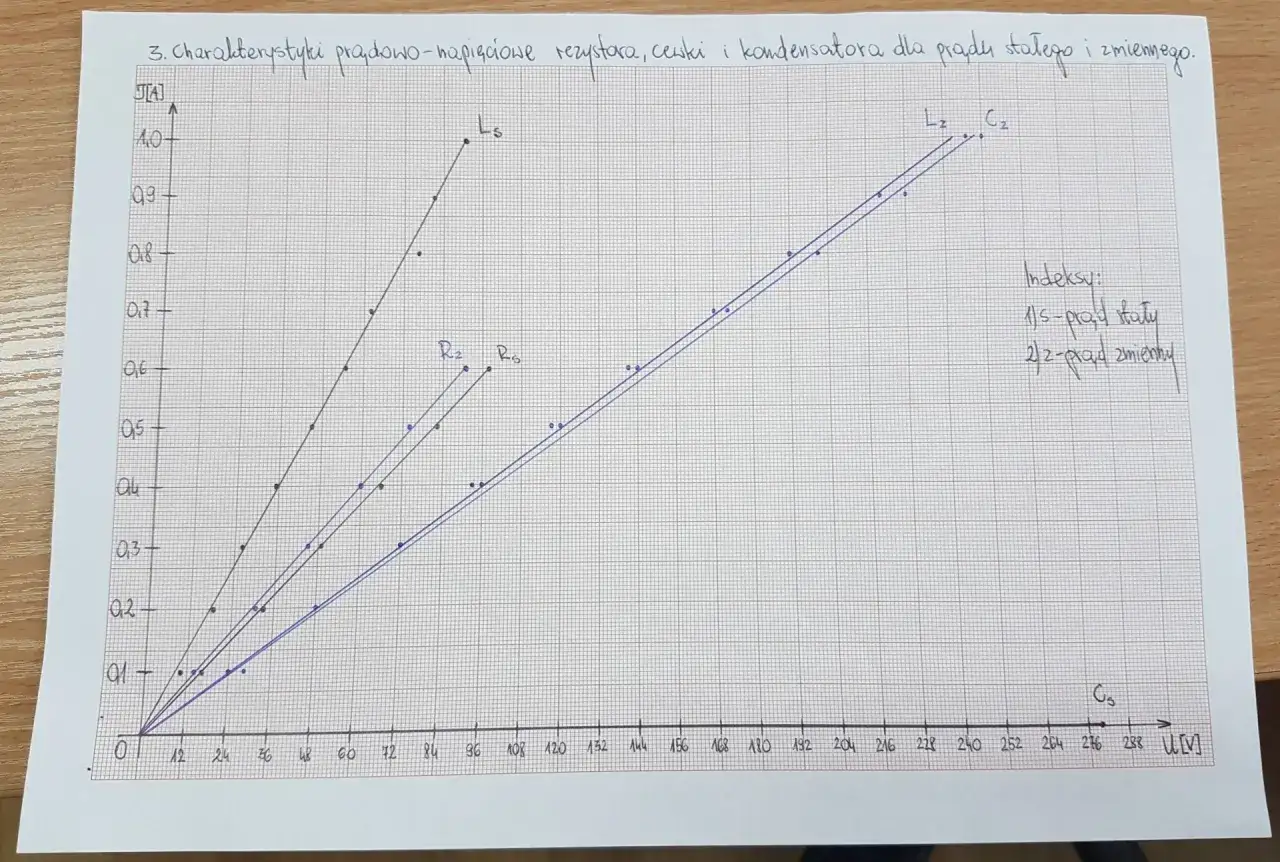 3. Charakterystyki prądowo-napięciowe rezystora, cewki i kondensatora dla prądu stałego i zmiennego.
I[A]
Ls
Lz Cz
1,0
0,9
0,8
Indeksy:
1) s-prąd stały
2) z-prąd zmienny
0,7
Rz Rs
0,6
0,5
0,4
0,3
0,2
0,1
Cs
0 12 24 36 48 60 72 84 96 108 120 132 144 156 168 180 192 204 216 228 240 252 264 276 288 U[V]